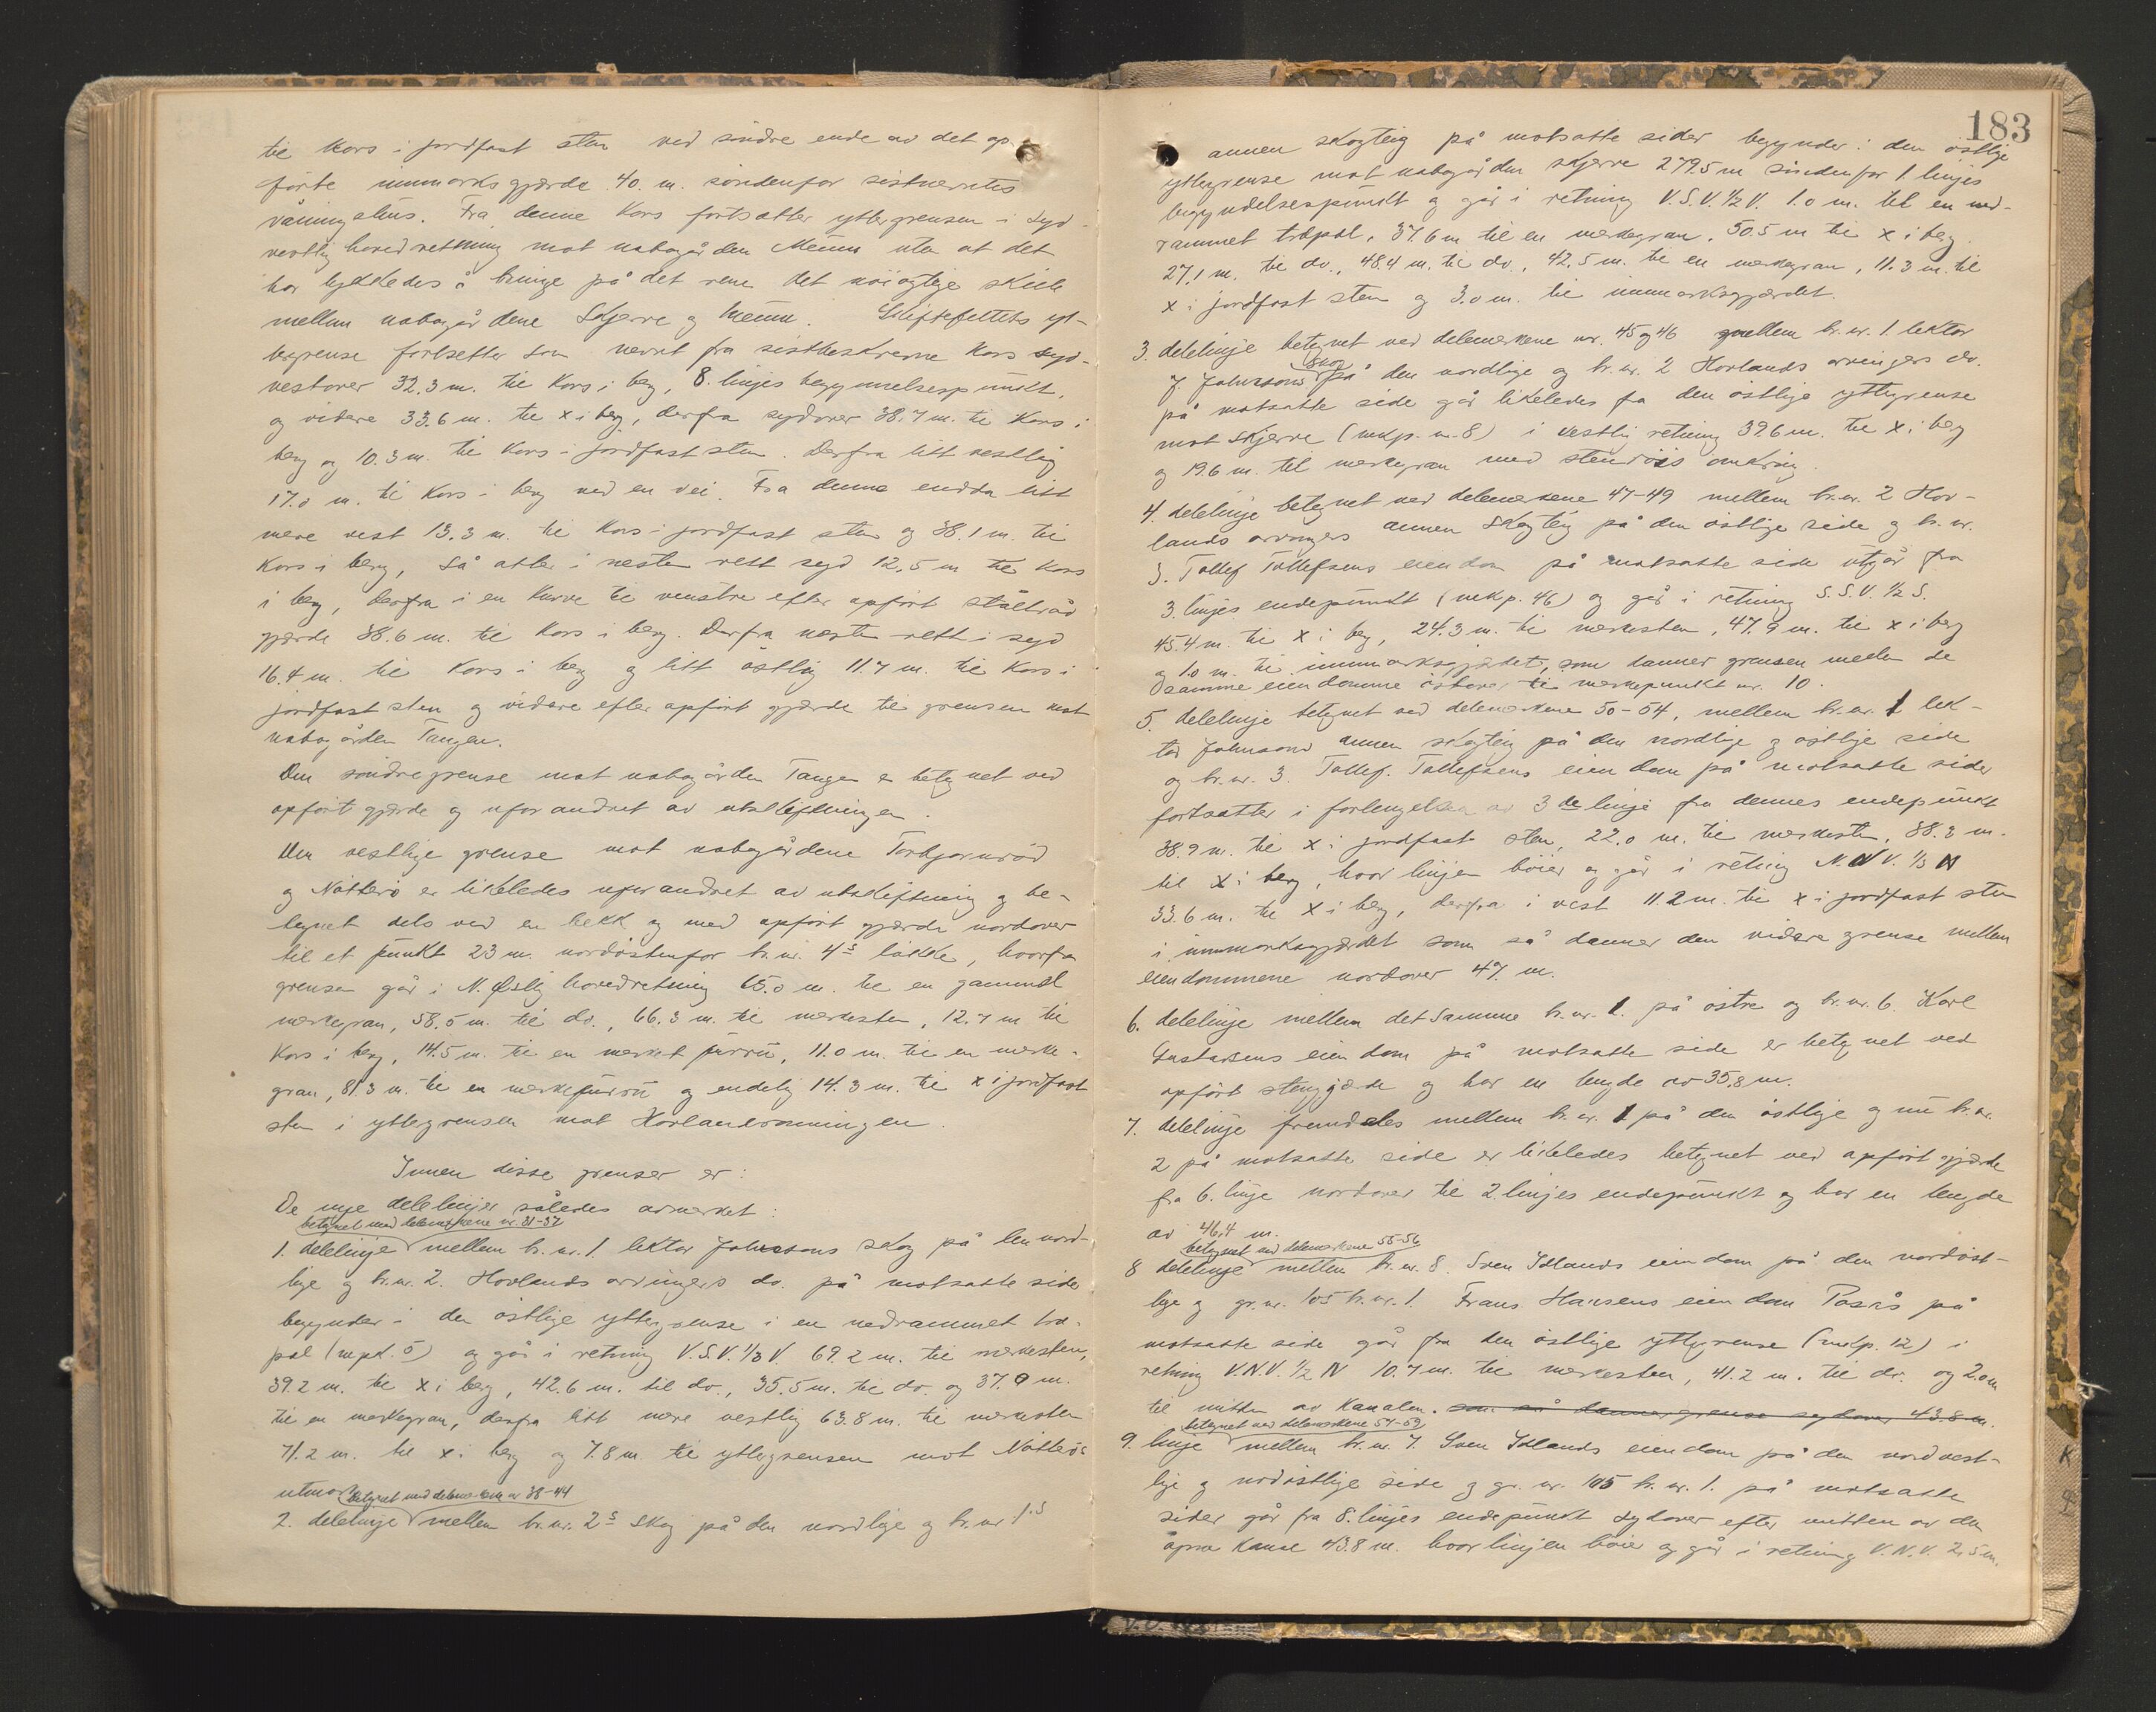 til kors i jordfast sten ved söndre ende av det op-
förte innmarksgjærde 40. m. söndenfor sistnevntes
våningshus. Fra denne kors fortsætter yttergrensen i syd-
vestlig hovedretning mot nabogården Meum uten at det
har lykkedes å bringe på det rene det nöiagtige skille
mellem nabogårdene Skjerve og Meum. Skiftefeltets yt-
tergrense fortsetter som nevnt fra sistbeskrevne kors syd-
vestover 32.3 m. til kors i berg, 8. linjes begynnelsespunkt,
og videre 33.6 m. til x i berg, derfra sydover 38.7 m. til kors i
berg og 10.3 m. til kors i jordfast sten. Derfra litt vestlig
17.0 m. til kors i berg ved en vei. Fra denne endda litt
mere vest 13.3 m. til kors i jordfast sten og 38.1 m. til
kors i berg, så atter i nesten rett syd 12.5 m til kors
i berg, derfra i en kurve til venstre efter opfört ståltråd
gjærde 38.6 m. til kors i berg. Derfra næsten rett i syd
16.4 m. til kors i berg og litt östlig 11.7 m. til kors i
jordfast sten og videre efter opfört gjærde til grensen mot
nabogården Tangen.
Den söndre grense mot nabogården Tangen er betegnet ved
opfört gjærde og uforandret av utskiftningen.
Den vestlige grense mot nabogårdene Torbjørnröd
og Nötterö er likeledes uforandret av utskiftning og be-
tegnet dels ved en bekk og med opfört gjærde nordover
til et punkt 23 m. nordöstenfor br.nr. 4s lökke, hvorfra
grensen går i N. Østlig hovedretning 65.0 m. til en gammel
merkegran, 58.5 m. til do., 66.3 m. til merkesten, 12.7 m til
kors i berg, 14.5 m. til en merket furru, 11.0 m. til en merke-
gran, 81.3 m. til en merkefurru og endelig 14.3 m. til x i jordfast
sten i yttergrensen mot Hovlandrönningen.
Innen disse grenser er:
De nye delelinjer således avmerket:
betegnet med delemerkene nr. 31-37
1. delelinje mellem br.nr. 1. lektor Johnsons skog på den nord-
lige og br.nr. 2. Hovlands arvingers do. på motsatte side
begynder i den östlige yttergrense i en nedrammet træ-
pæl (mpkt. 5) og går i retning V.S.V. 1/3 V. 69.2 m. til merkesten,
39.2 m. til x i berg, 42.6 m. til do., 35.5 m. til do. og 37.9 m.
til en merkegran, derfra litt mere vestlig 63.8 m. til merkesten
71.2 m. til x i berg og 7.8 m. til yttergrensen mot Nötterös
utmark
betegnet med delemerkene nr 38-44
2. delelinje mellem br.nr. 2s skog på den nordlige og br.nr 1.s
183
annen skogteig på motsatte sider begynder i den östlige
yttergrense mot nabogården Skjerve 279.5 m söndenfor 1 linjes
begyndelsespunkt og går i retning V.S.V. 1/2 V. 1.0 m. til en ned-
rammet træpæl, 37.6 m til en merkegran, 50.5 m til x i berg
27.1 m. til do., 48.4 m. til do., 42.5 m. til en merkegran, 11.3 m. til
x i jordfast sten og 3.0 m. til innmarksgjærdet.
3. delelinje betegnet ved delemerkene nr. 45 og 46 mellem br.nr. 1. lektor
skog
J. Johnsons på den nordlige og br.nr. 2 Hovlands arvingers do.
på motsatte side går likeledes fra den östlige yttergrense
mot Skjerve (mkp. nr. 8) i vestlig retning 39.6 m. til x i berg
og 19.6 m. til merkegran med stenröis omkring.
4. delelinje betegnet ved delemerkene 47-49 mellem br.nr. 2 Hov-
lands arvingers annen skogteig på den östlige side og br.nr.
3. Tollef Tollefsens eiendom på motsatte side utgår fra
3. linjes endepunkt (mkp. 46) og går i retning S.S.V. 1/2 S.
45.4 m. til x i berg, 24.3 m. til merkesten, 47.9 m. til x i berg
og 1.0 m. til innmarksgjærdet, som danner grensen mellem de
samme eiendomme östover til merkepunkt nr. 10.
5. delelinje betegnet ved delemerkene 50-54, mellem br.nr. 1 lek-
tor Johnsons annen skogteig på den nordlige og östlige side
og br.nr. 3. Tollef. Tollefsens eiendom på motsatte sider
fortsætter i forlengelsen av 3de linje fra dennes endepunkt
38.9 m. til x i jordfast sten, 22.0 m. til merkesten, 38.3 m.
til x i berg, hvor linjen böier og går i retning N.N.V. 1/3 N
33.6 m. til x i berg, derfra i vest 11.2 m. til x i jordfast sten
i innmarksgjærdet som så danner den videre grense mellem
eiendommene nordover 47 m.
6. delelinje mellem det samme br.nr. 1. på östre og br.nr. 6. Karl
Gustavsens eiendom på motsatte side er betegnet ved
opfört stengjærde og har en lengde av 35.8 m.
7. delelinje fremdeles mellem br.nr. 1 på den östlige og nu br.nr.
2 på motsatte side er likeledes betegnet ved opfört gjærde
fra 6. linje nordover til 2. linjes endepunkt og har en lengde
av 46.4 m.
betegnet ved delemerkene 55-56
8 delelinje mellem br.nr. 8. Sven Idlands eiendom på den nordöst-
lige og gr.nr. 105 br.nr. 1. Frans Hansens eiendom Posås på
motsatte side går fra den östlige yttergrense (mkp. 12) i
retning V.N.V. 1/2 N 10.7 m. til merkesten, 41.2 m. til do. og 2.0 m
til midten av kanalen. som så danner grense sydover 43.8 m.
betegnet ved delemerkene 57-59
9. linje mellem br.nr. 7. Sven Idlands eiendom på den nordvest-
lige og nordöstlige side og gr.nr. 105 br.nr. 1. på motsatte
sider går fra 8. linjes endepunkt sydover efter midten av den
åpne kanal 43.8 m. hvor linjen böier og går i retning V.N.V. 2.5 m.